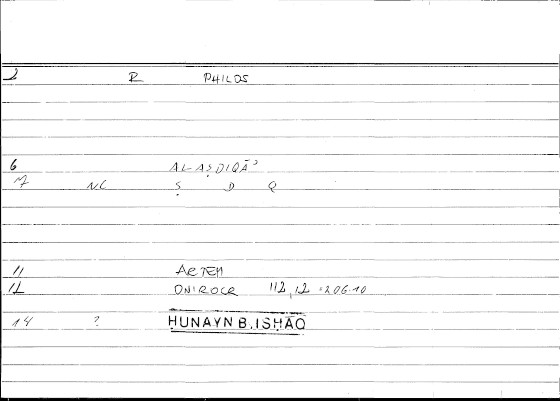 2 R PHILOS
6 AL-AṢDIQĀʾ
7 NC Ṣ D Q
11 ARTEM
12 ONIROCR 112,12 = 206.10
14 ? HUNAYN B. ISḤĀQ